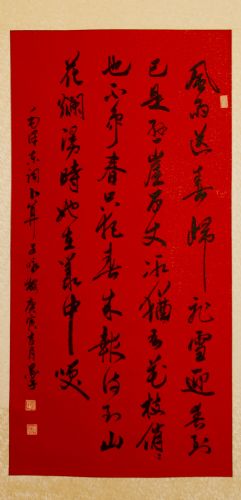 風雨送春歸飛雪迎春到
已是懸崖百丈冰猶有花枝俏
也不爭春只把春來報待到山
花爛漫時她在叢中笑
毛澤東詞卜算子詠梅庚寅